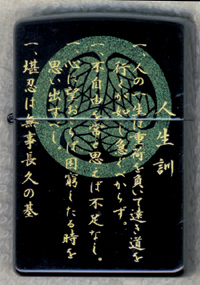 人生訓
一、人の一生は重荷を負いて遠き道を
行くが如し急ぐべからず。
一、不自由を常と思えば不足なし。
一、心に望みおこらば困窮したる時を
思い出すべし。
一、堪忍は無事長久の基